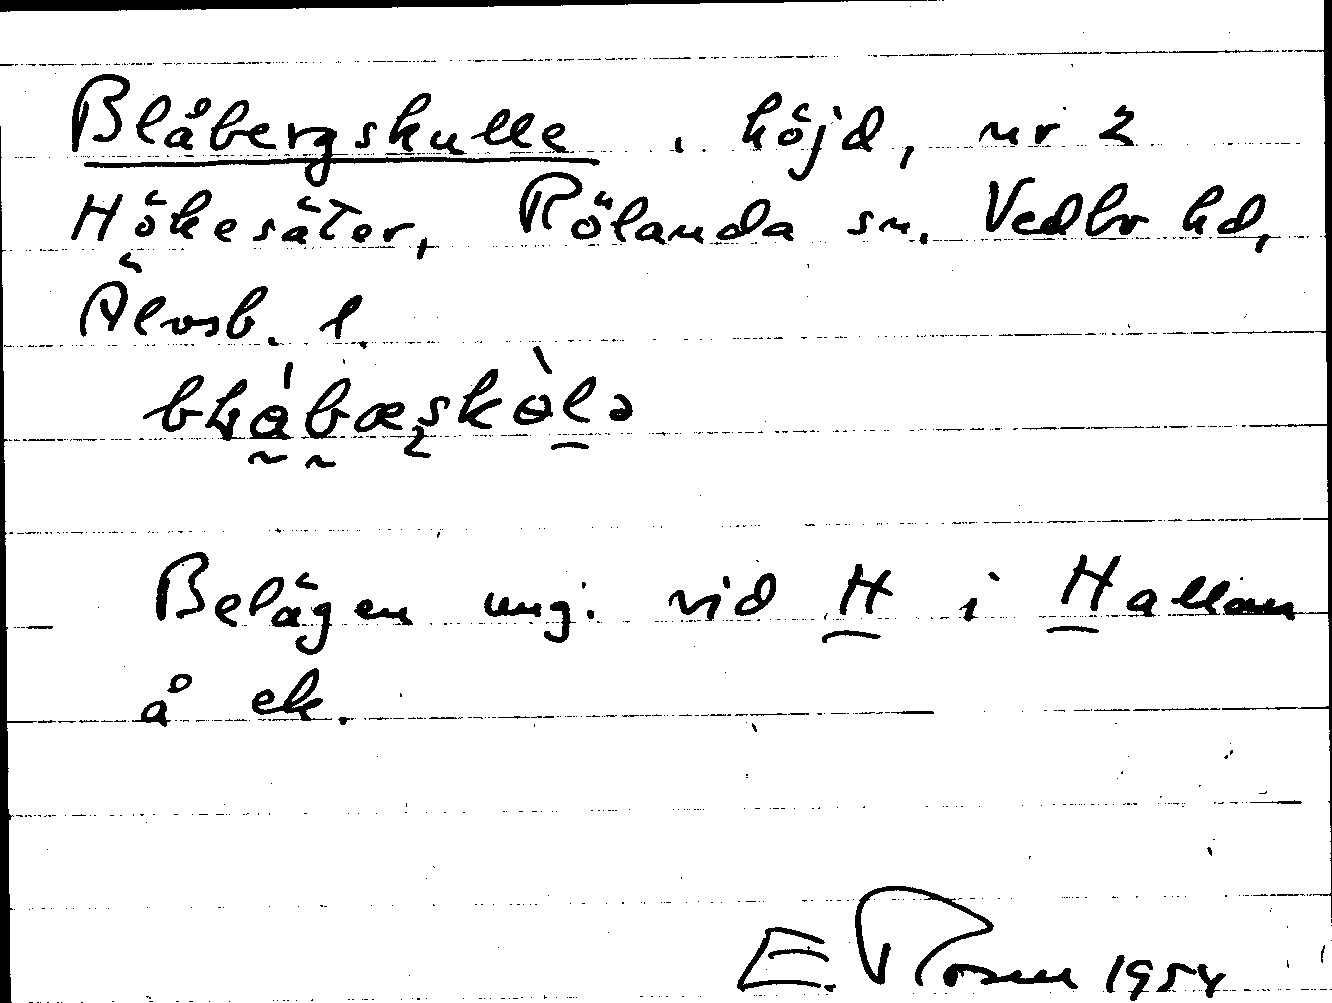 Blåbergskulle, höjd, nr 2
Hökesäter, Rölanda sn. Vedbo hd,
Älvsb. l.
Belägen ung. vid H i Hallan
å ek.
E. Rosén 1954